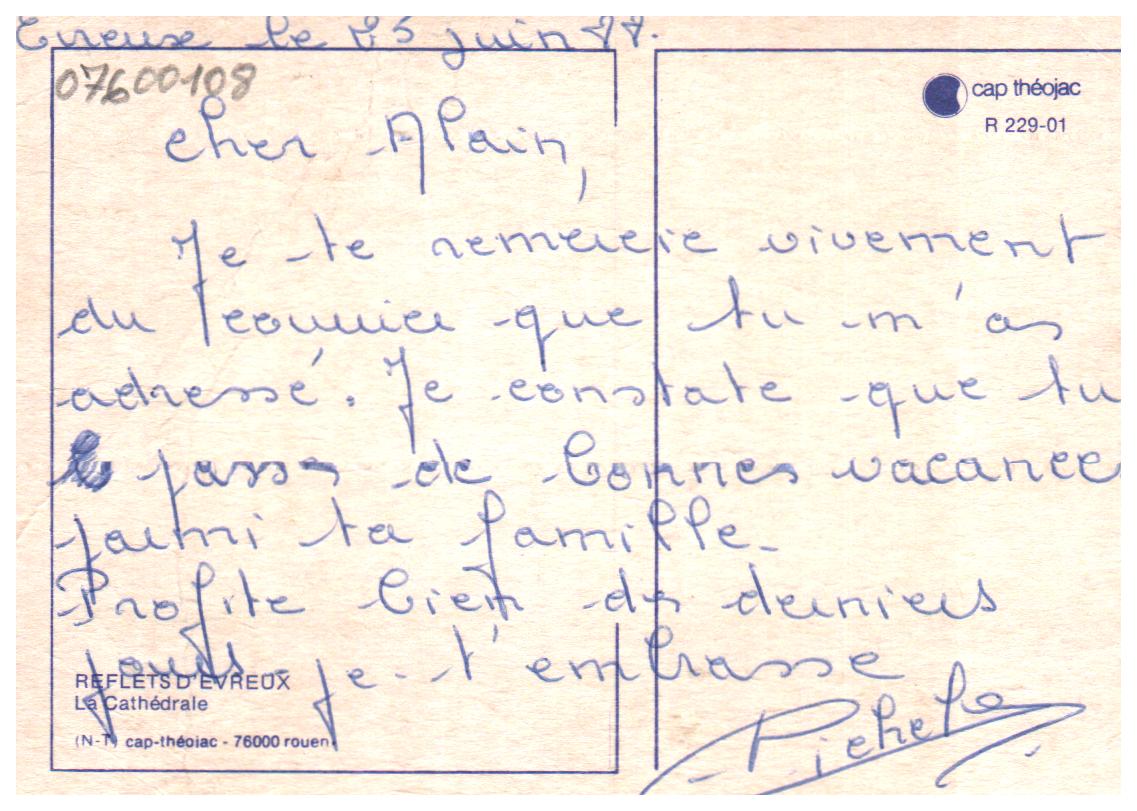 Evreux le 25 juin 77.
07600108
cap théojac
R 229-01
cher Alain,
Je te remercie vivement
du courrier que tu m'as
adressé. Je constate que tu
passes de bonnes vacances
parmi ta famille.
Profite bien des derniers
jours je t'embrasse
REFLETS D'EVREUX
La Cathédrale
(N-T) cap-théojac - 76000 rouen